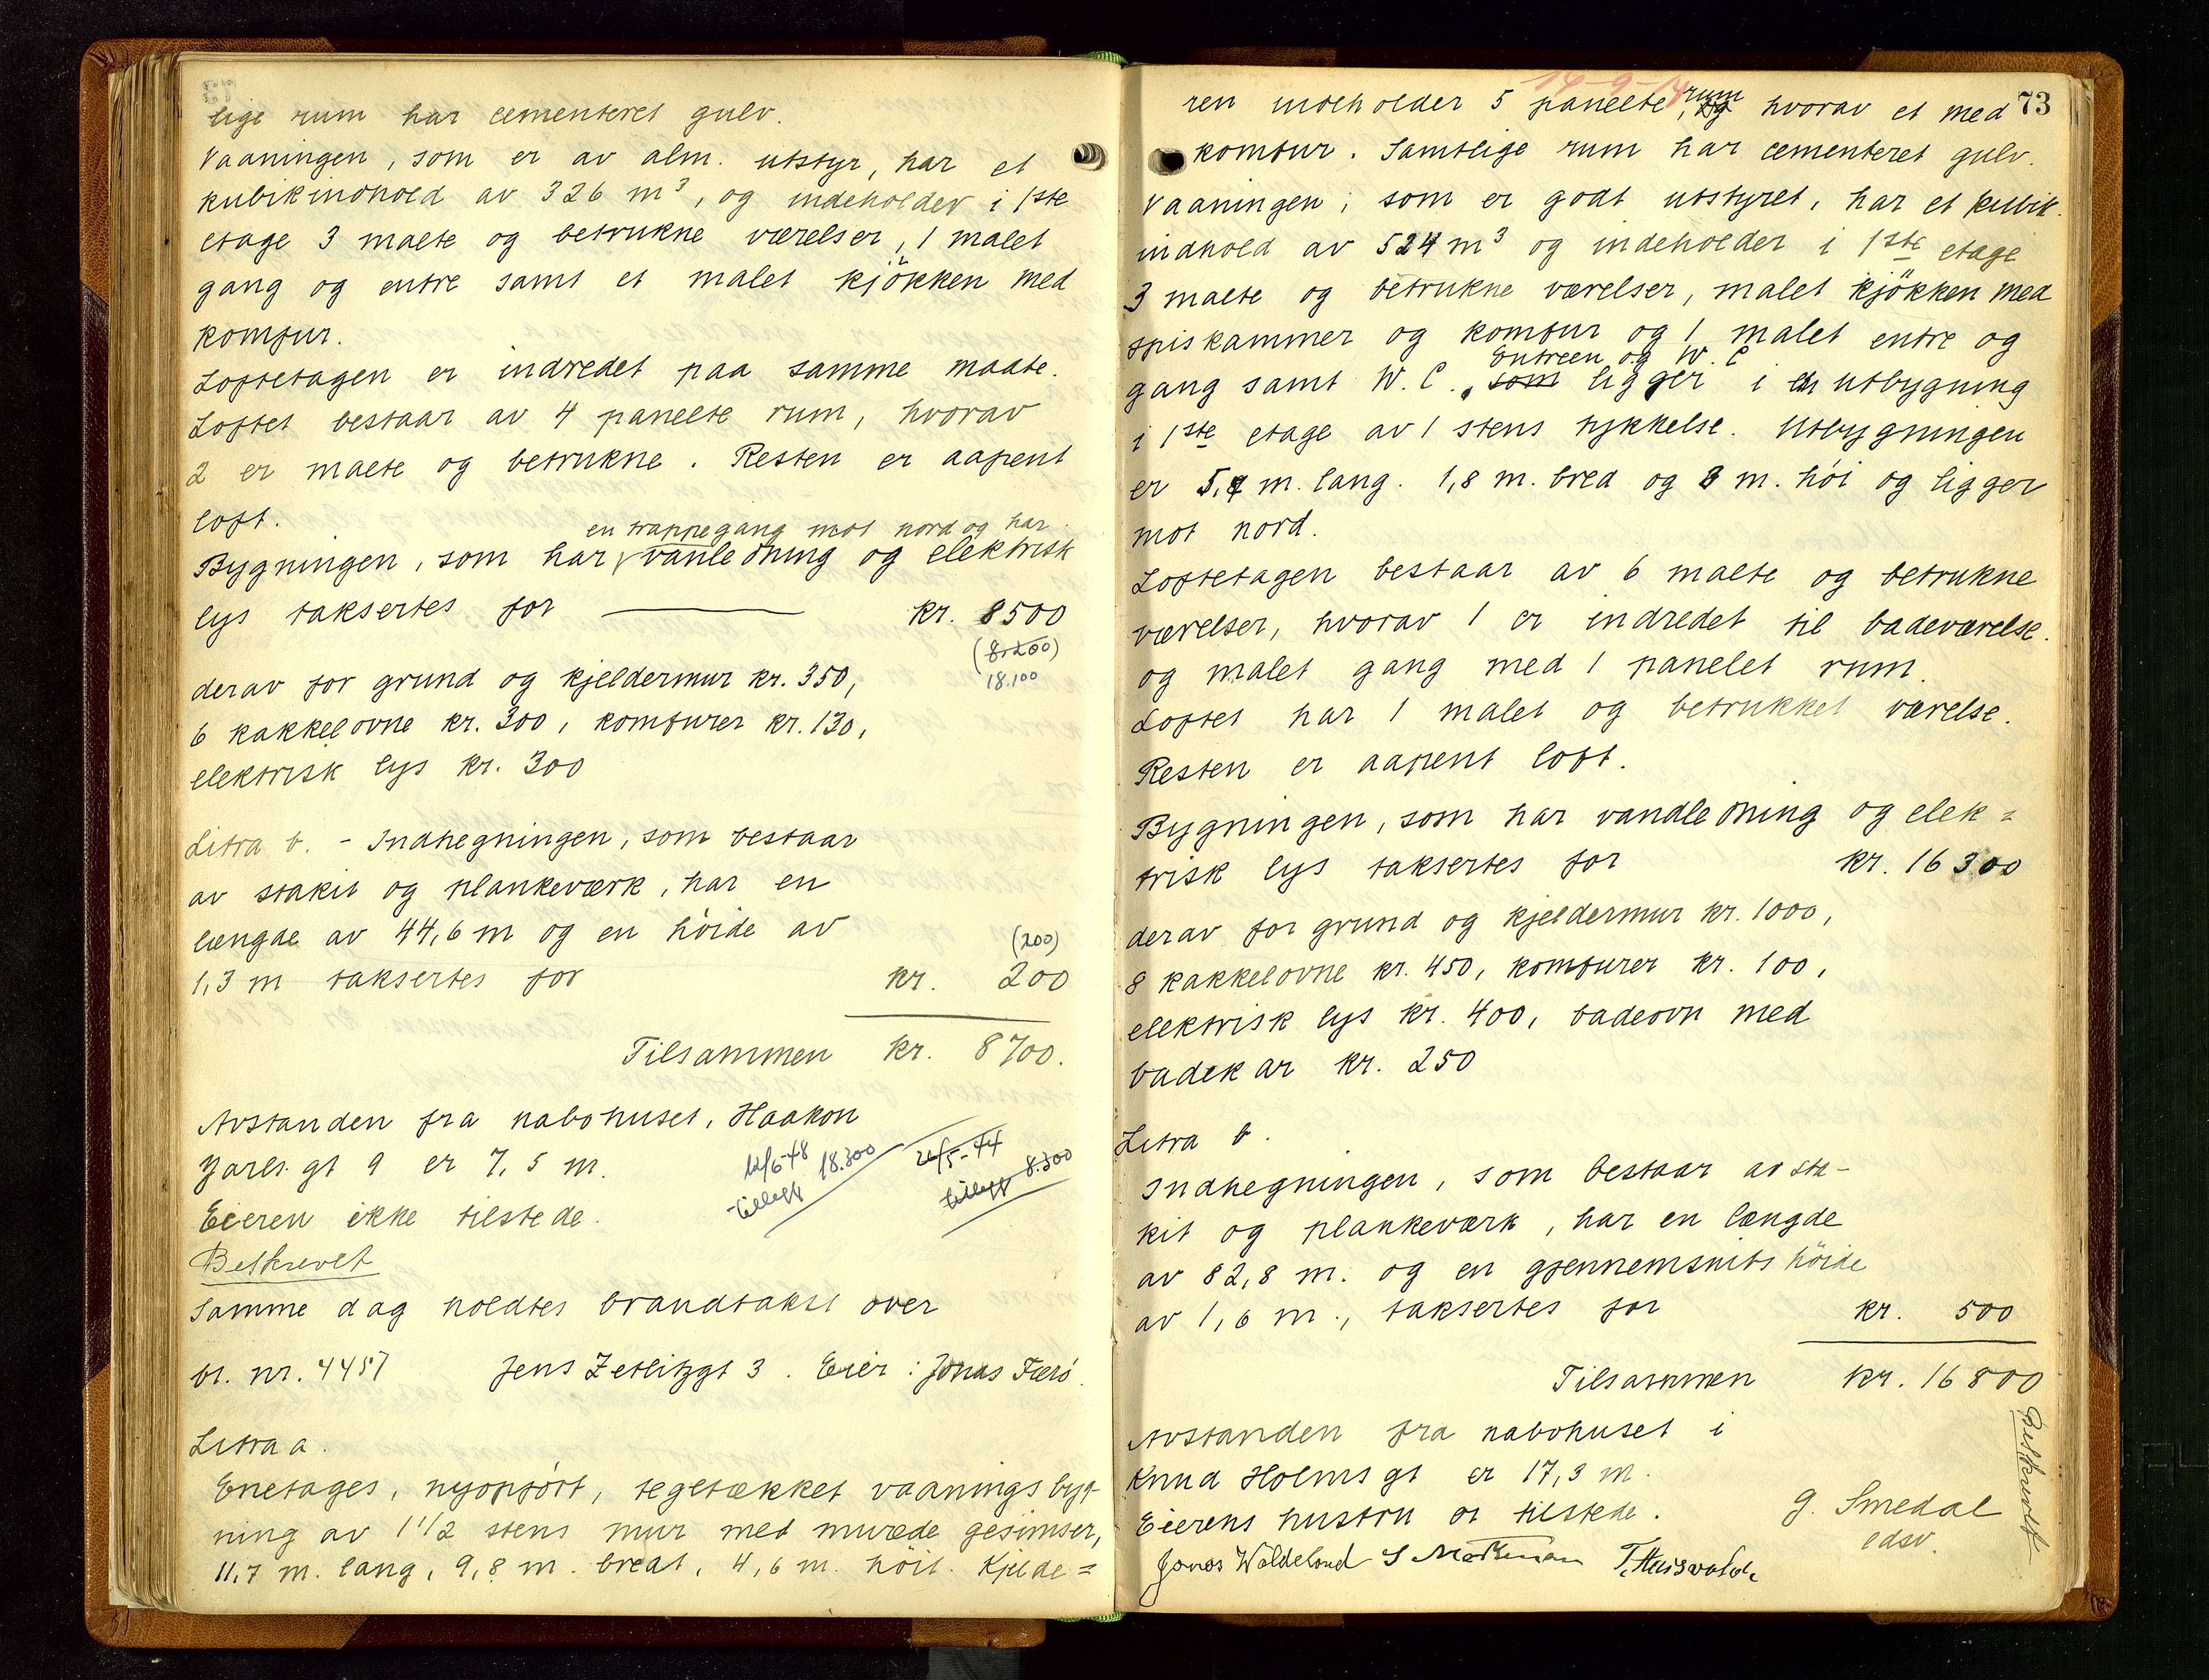 lige rum har cementeret gulv.
Vaaningen, som er av alm. utstyr, har et
kubikindhold av 326 m³, og indeholder i 1ste
etage 3 malte og betrukne værelser, 1 malet
gang og entre samt et malet kjökken med
komfur.
Loftetagen er indredet paa samme maate.
Loftet bestaar av 4 panelte rum, hvorav
2 er malte og betrukne. Resten er aapent
loft.
en trappegang mot nord og har
Bygningen, som har vanledning og elektrisk
lys taksertes for kr. 8500
(8.200)
18.100
derav for grund og kjeldermur kr. 350,
6 kakkelovne kr. 300, komfurer kr. 130,
elektrisk lys kr. 300
Litra b. - Indhegningen, som bestaar
av stakit og plankeværk, har en
længde av 44,6 m og en höide av
(200)
1,3 m taksertes for kr. 200
Tilsammen kr. 8700.
Avstanden fra nabohuset, Haakon
Jarls gt 9 er 7,5 m.
12/6-48 18.300
tillegg
26/5-44
tillegg 8.300
Eieren ikke tilstede.
Beskrevet
Samme dag holdtes brandtakst over
br. nr. 4457 Jens Zetlitzgt 3. Eier: Jonas Færö.
Litra a.
Enetages, nyopfört, tegltækket vaaningsbyg-
ning av 1 1/2 stens mur med murede gesimser,
11,7 m. lang, 9,8 m. bredt, 4,6 m. höit. Kjelde=
73
ren indeholder 5 panelte, rum og hvorav et med
komfur. Samtlige rum har cementeret gulv.
Vaaningen, som er godt utstyret, har et kubik.
indhold av 524 m³ og indeholder i 1ste etage
3 malte og betrukne værelser, malet kjökken med
spiskammer og komfur og 1 malet entre og
Entreen og W.C
gang samt W.C. som ligger i en utbygning
i 1ste etage av 1 stens tykkelse. Utbygningen
er 5,4 m. lang. 1,8 m. bred og 3 m. hói og ligger
mot nord.
Loftetagen bestaar av 6 malte og betrukne
værelser, hvorav 1 er indredet til badeværelse.
og malet gang med 1 panelet rum.
Loftet har 1 malet og betrukket værelse.
Resten er aapent loft.
Bygningen, som har vandledning og elek=
trisk lys taksertes for kr. 16300
derav for grund og kjeldermur kr. 1000,
8 kakkelovne kr. 450, komfurer kr. 100,
elektrisk lys kr. 400, badeovn med
badekar kr. 250
Litra b.
Indhegningen, som bestaar av sta-
kit og plankeværk, har en længde
av 82,8 m. og en gjennemsnits höide
av 1,6 m., taksertes for kr. 500
Tilsammen kr. 16800
Avstanden fra nabohuset i
Knud Holms gt er 17,3 m.
Eierens hustru er tilstede.
Beskrevet
G. Smedal
edsv.
Jonas Waldeland